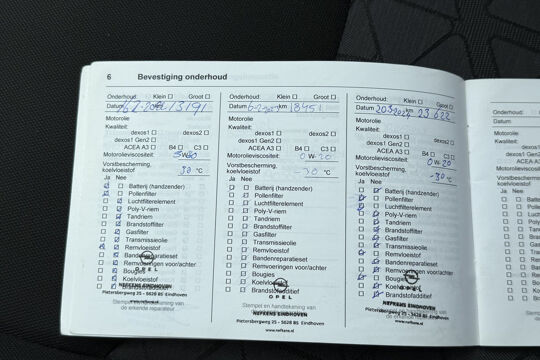 6 Bevestiging onderhoud
Onderhoud: Klein Groot
Datum km 13191
Motorolie
Kwaliteit:
dexos1 dexos2
dexos1 Gen2
ACEA A3 B4 C3
Motorolieviscositeit:
Vorstbescherming,
koelvloeistof 30 °C
Ja Nee
Batterij (handzender)
Pollenfilter
Luchtfilterelement
Poly-V-riem
Tandriem
Brandstoffilter
Gasfilter
Transmissieolie
Remvloeistof
Bandenreparatieset
Remvoeringen voor/achter
Bougies
Koelvloeistof
OPEL
NEFKENS EINDHOVEN
Pietersbergweg 25 - 5628 BS Eindhoven
www.nefkens.nl
Onderhoud: Klein Groot
Datum km 18451
Motorolie
Kwaliteit:
dexos1 dexos2
dexos1 Gen2
ACEA A3 B4 C3
Motorolieviscositeit: 0W-20
Vorstbescherming,
koelvloeistof -30 °C
Ja Nee
Batterij (handzender)
Pollenfilter
Luchtfilterelement
Poly-V-riem
Tandriem
Brandstoffilter
Gasfilter
Transmissieolie
Remvloeistof
Bandenreparatieset
Remvoeringen voor/achter
Bougies
Koelvloeistof
Brandstofadditief
OPEL
Stempel en handtekening van
NEFKENS EINDHOVEN
Pietersbergweg 25 - 5628 BS Eindhoven
www.nefkens.nl
Onderhoud: Klein Groot
Datum 20-3-2024 km 23622
Motorolie
Kwaliteit:
dexos1 dexos2
dexos1 Gen2
ACEA A3 B4 C3
Motorolieviscositeit: 0W-20
Vorstbescherming,
koelvloeistof -30 °C
Ja Nee
Batterij (handzender)
Pollenfilter
Luchtfilterelement
Poly-V-riem
Tandriem
Brandstoffilter
Gasfilter
Transmissieolie
Remvloeistof
Bandenreparatieset
Remvoeringen voor/achter
Bougies
Koelvloeistof
Brandstofadditief
NEFKENS EINDHOVEN
Pietersbergweg 25 - 5628 BS Eindhoven
www.nefkens.nl
Onderhoud:
Datum
Motorolie
Kwaliteit:
Motorolieviscositeit
Vorstbescherming,
koelvloeistof
Ja Nee